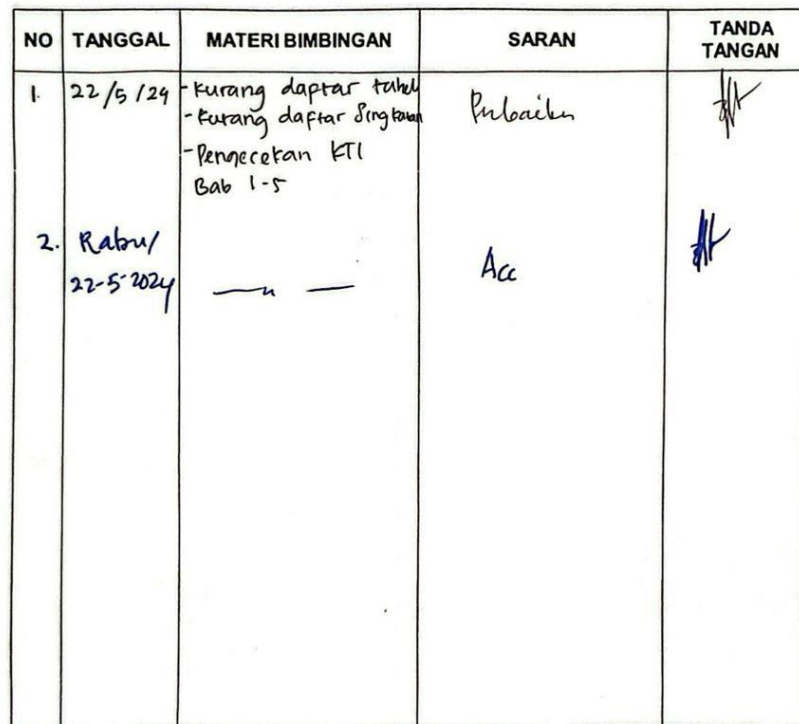 NO TANGGAL MATERI BIMBINGAN SARAN TANDA TANGAN
1. 22/5/24 - Kurang daftar tabel Perbaiki
- Kurang daftar Singkatan
- Pengecekan KTI
Bab 1-5
2. Rabu/ Acc
22-5-2024 — " —